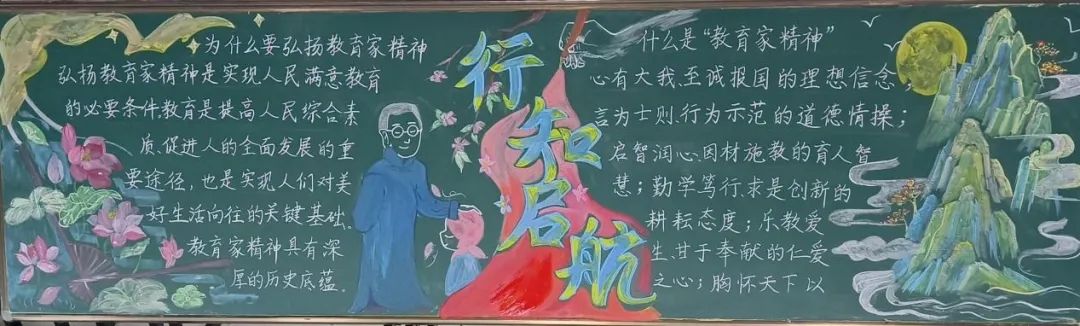 为什么要弘扬教育家精神
弘扬教育家精神是实现人民满意教育
的必要条件,教育是提高人民综合素
质、促进人的全面发展的重
要途径，也是实现人们对美
好生活向往的关键基础。
教育家精神具有深
厚的历史底蕴。
行
知
启
航
什么是“教育家精神”
心有大我、至诚报国的理想信念；
言为士则、行为示范的道德情操；
启智润心、因材施教的育人智
慧；勤学笃行、求是创新的
耕耘态度；乐教爱
生、甘于奉献的仁爱
之心；胸怀天下、以